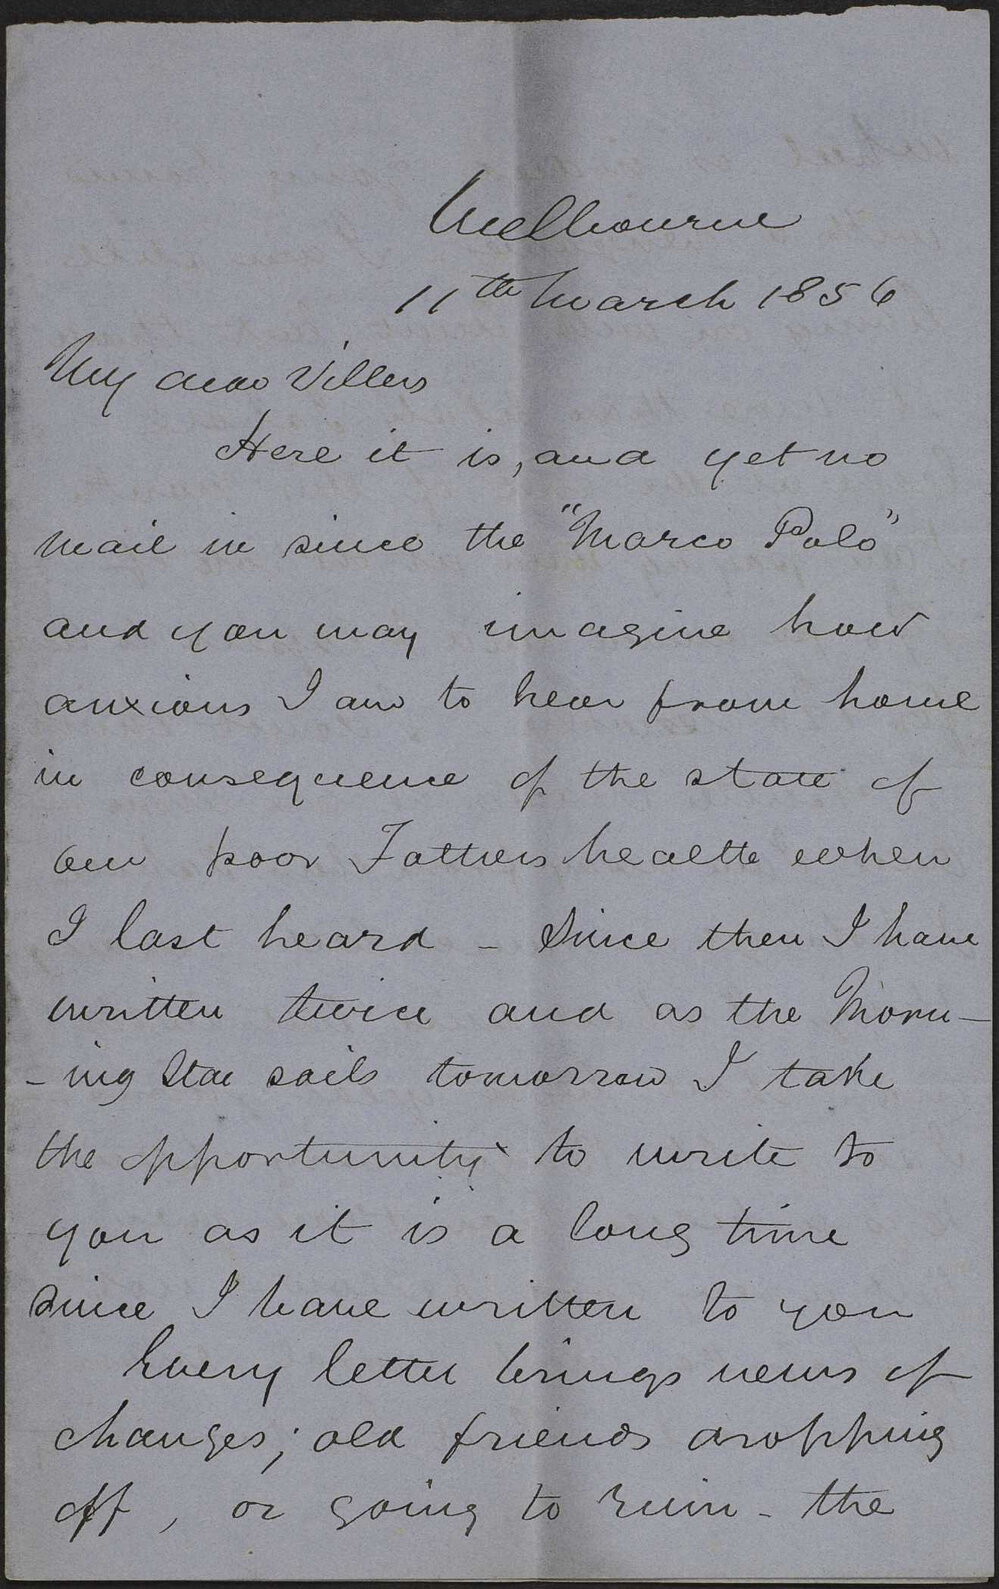 Melbourne
11th March 1856
My dear Villers
Here it is, and yet no
mail in since the "Marco Polo"
and you may imagine how
anxious I am to hear from home
in consequence of the state of
our poor Fathers health when
I last heard - Since then I have
written twice and as the Morn-
-ing Star sails tomorrow I take
the opportunity to write to
you as it is a long time
since I have written to you
Every letter brings news of
changes; old friends dropping
off, or going to ruin - the